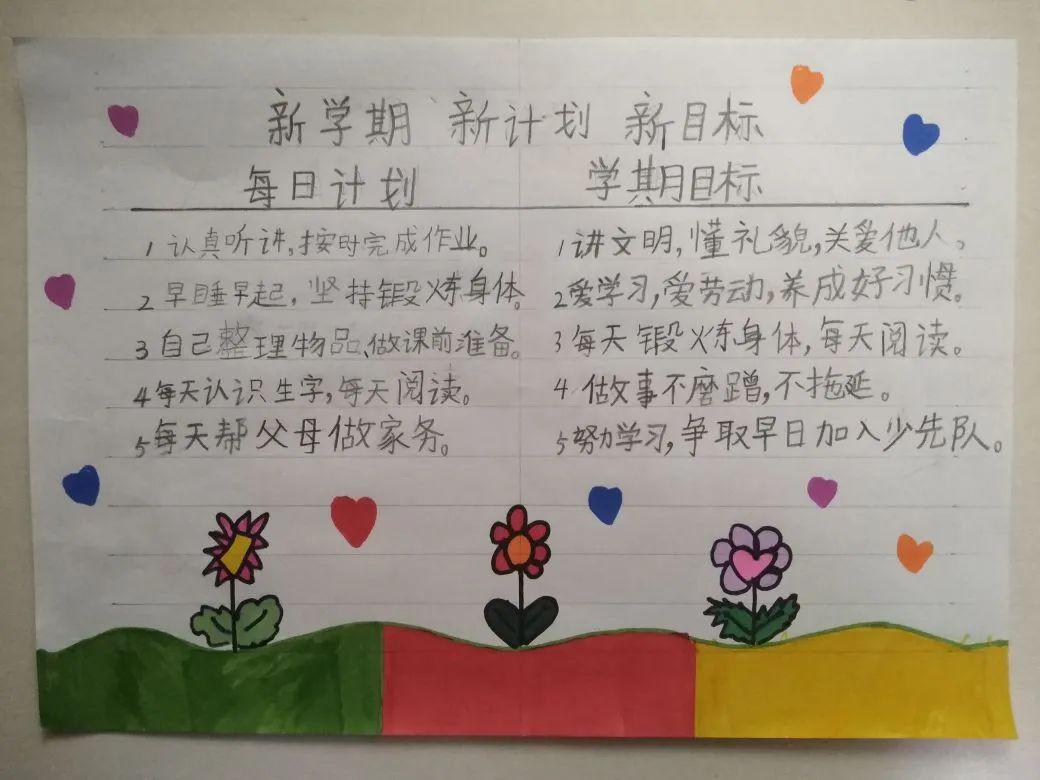 新学期 新计划 新目标
每日计划
1 认真听讲,按时完成作业。
2 早睡早起,坚持锻炼身体。
3 自己整理物品、做课前准备。
4 每天认识生字,每天阅读。
5 每天帮父母做家务。
学期目标
1 讲文明,懂礼貌,关爱他人。
2 爱学习,爱劳动,养成好习惯。
3 每天锻炼身体,每天阅读。
4. 做事不磨蹭,不拖延。
5 努力学习,争取早日加入少先队。